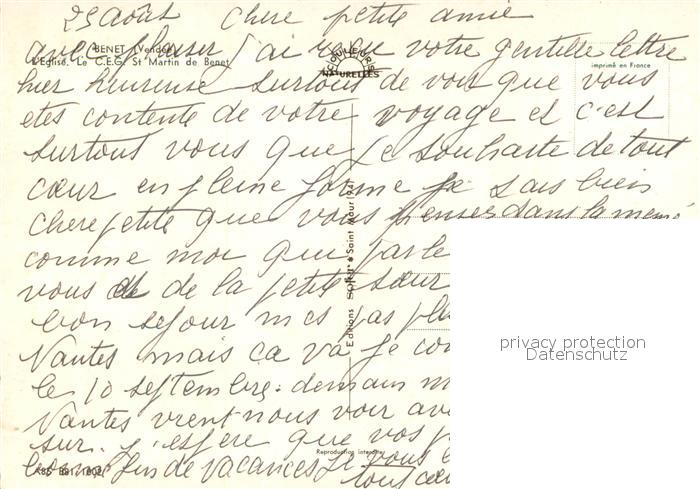 29 août chere petite amie
avec plaisir j'ai reçu votre gentille lettre
BENET (Vendée)
L'Eglise. Le C.E.G. St Martin de Benet
COULEURS NATURELLES
imprimé en France
hier heureuse surtout de voir que vous
etes contente de votre voyage et c'est
surtout vous que je souhaite de tout
cœur en pleine forme je sais bien
chere petite que vous pensez dans la meme
comme moi qui parle
vous de de la petite sœur
bon sejour mes pas
Nantes mais ca va je
le 10 septembre. demain
Nantes vient nous voir
sur. j'espere que vos
bonne fin de vacances je vous
tout cœur
Editions Saint Maur
Reproduction interdite
privacy protection
Datenschutz